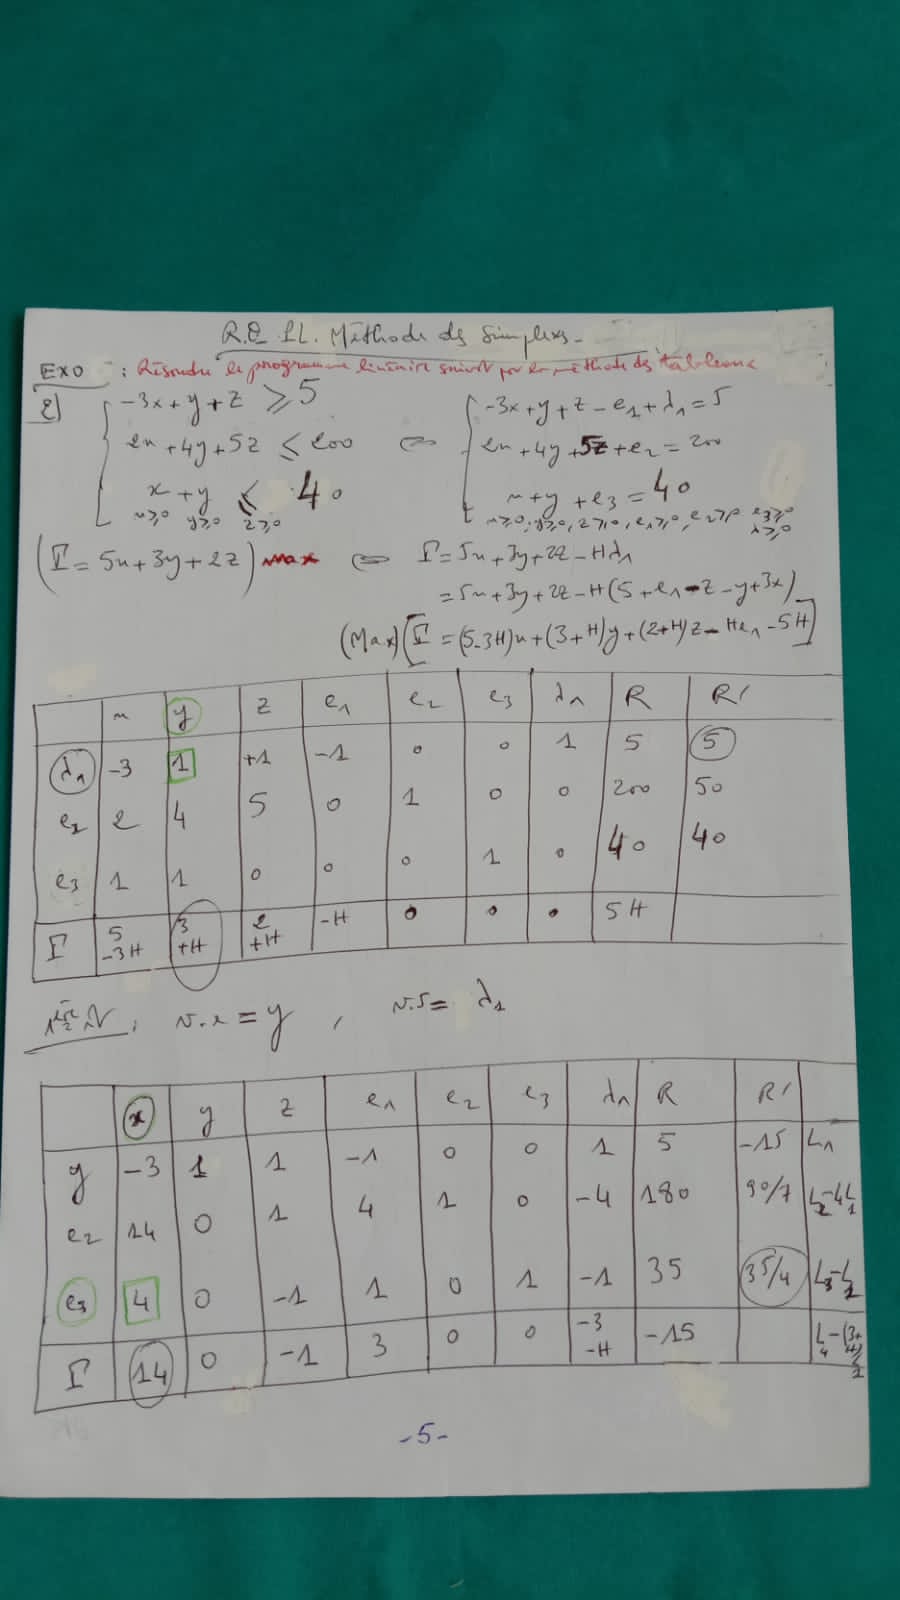 R.O PL. Méthode des Simplexes.
EXO : Résoudre le programme linéaire suivant par la méthode des tableaux
2)
-3x+y+z ⩾ 5 ⇔ -3x+y+z-e1+λ1=5
2x+4y+5z ≤ 200 2x+4y+5z+e2=200
x+y ≤ 40 x+y+e3=40
x≥0 y≥0 z≥0 x≥0, y≥0, z≥0, e1≥0, e2≥0 e3≥0 λ≥0
(Γ=5x+3y+2z) max ⇔ Γ=5x+3y+2z-Hλ1
=5x+3y+2z-H(5+e1-z-y+3x)
(Max)[Γ=(5-3H)x+(3+H)y+(2+H)z-He1-5H]
x y z e1 e2 e3 λ1 R R'
λ1 -3 1 +1 -1 0 0 1 5 5
e2 2 4 5 0 1 0 0 200 50
e3 1 1 0 0 0 1 0 40 40
Γ 5-3H 3+H 2+H -H 0 0 0 5H
v.e=y , v.s= λ1
x y z e1 e2 e3 λ1 R R'
y -3 1 1 -1 0 0 1 5 -15 L1
e2 14 0 1 4 1 0 -4 180 90/7 L2-4L1
e3 4 0 -1 1 0 1 -1 35 35/4 L3-L1
Γ 14 0 -1 3 0 0 -3-H -15 L4-(3+H)L1
-5-